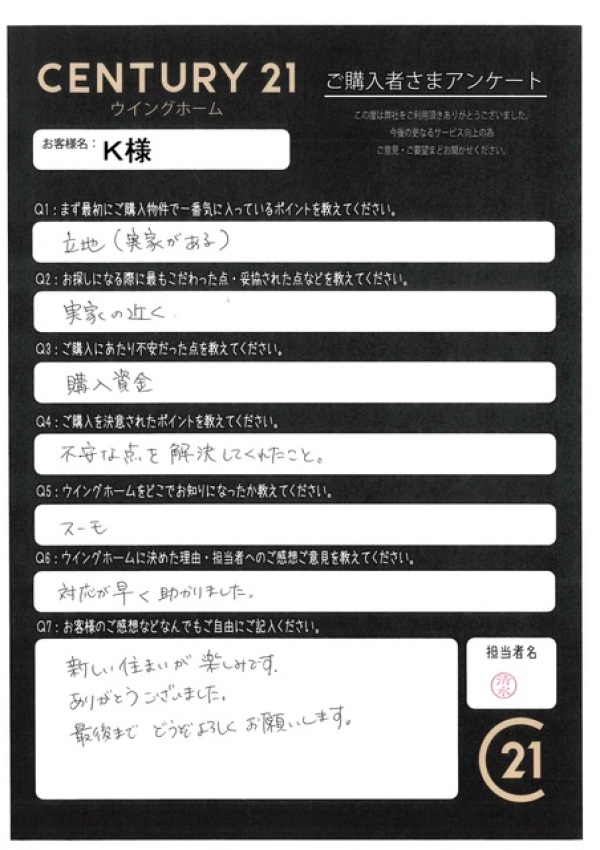 CENTURY 21
ウイングホーム
ご購入者さまアンケート
この度は弊社をご利用頂きありがとうございました。
今後の更なるサービス向上の為
ご意見・ご要望をお聞かせください。
お客様名： K様
Q1：まず最初にご購入物件で一番気に入っているポイントを教えてください。
立地（実家がある）
Q2：お探しになる際に最もこだわった点・妥協された点などを教えてください。
実家の近く
Q3：ご購入にあたり不安だった点を教えてください。
購入資金
Q4：ご購入を決意されたポイントを教えてください。
不安な点を解決してくれたこと。
Q5：ウイングホームをどこでお知りになったか教えてください。
スーモ
Q6：ウイングホームに決めた理由・担当者へのご感想ご意見を教えてください。
対応が早く助かりました。
Q7：お客様のご感想などなんでもご自由にご記入ください。
新しい住まいが楽しみです。
ありがとうございました。
最後までどうぞよろしくお願いします。
担当者名
清水
C21